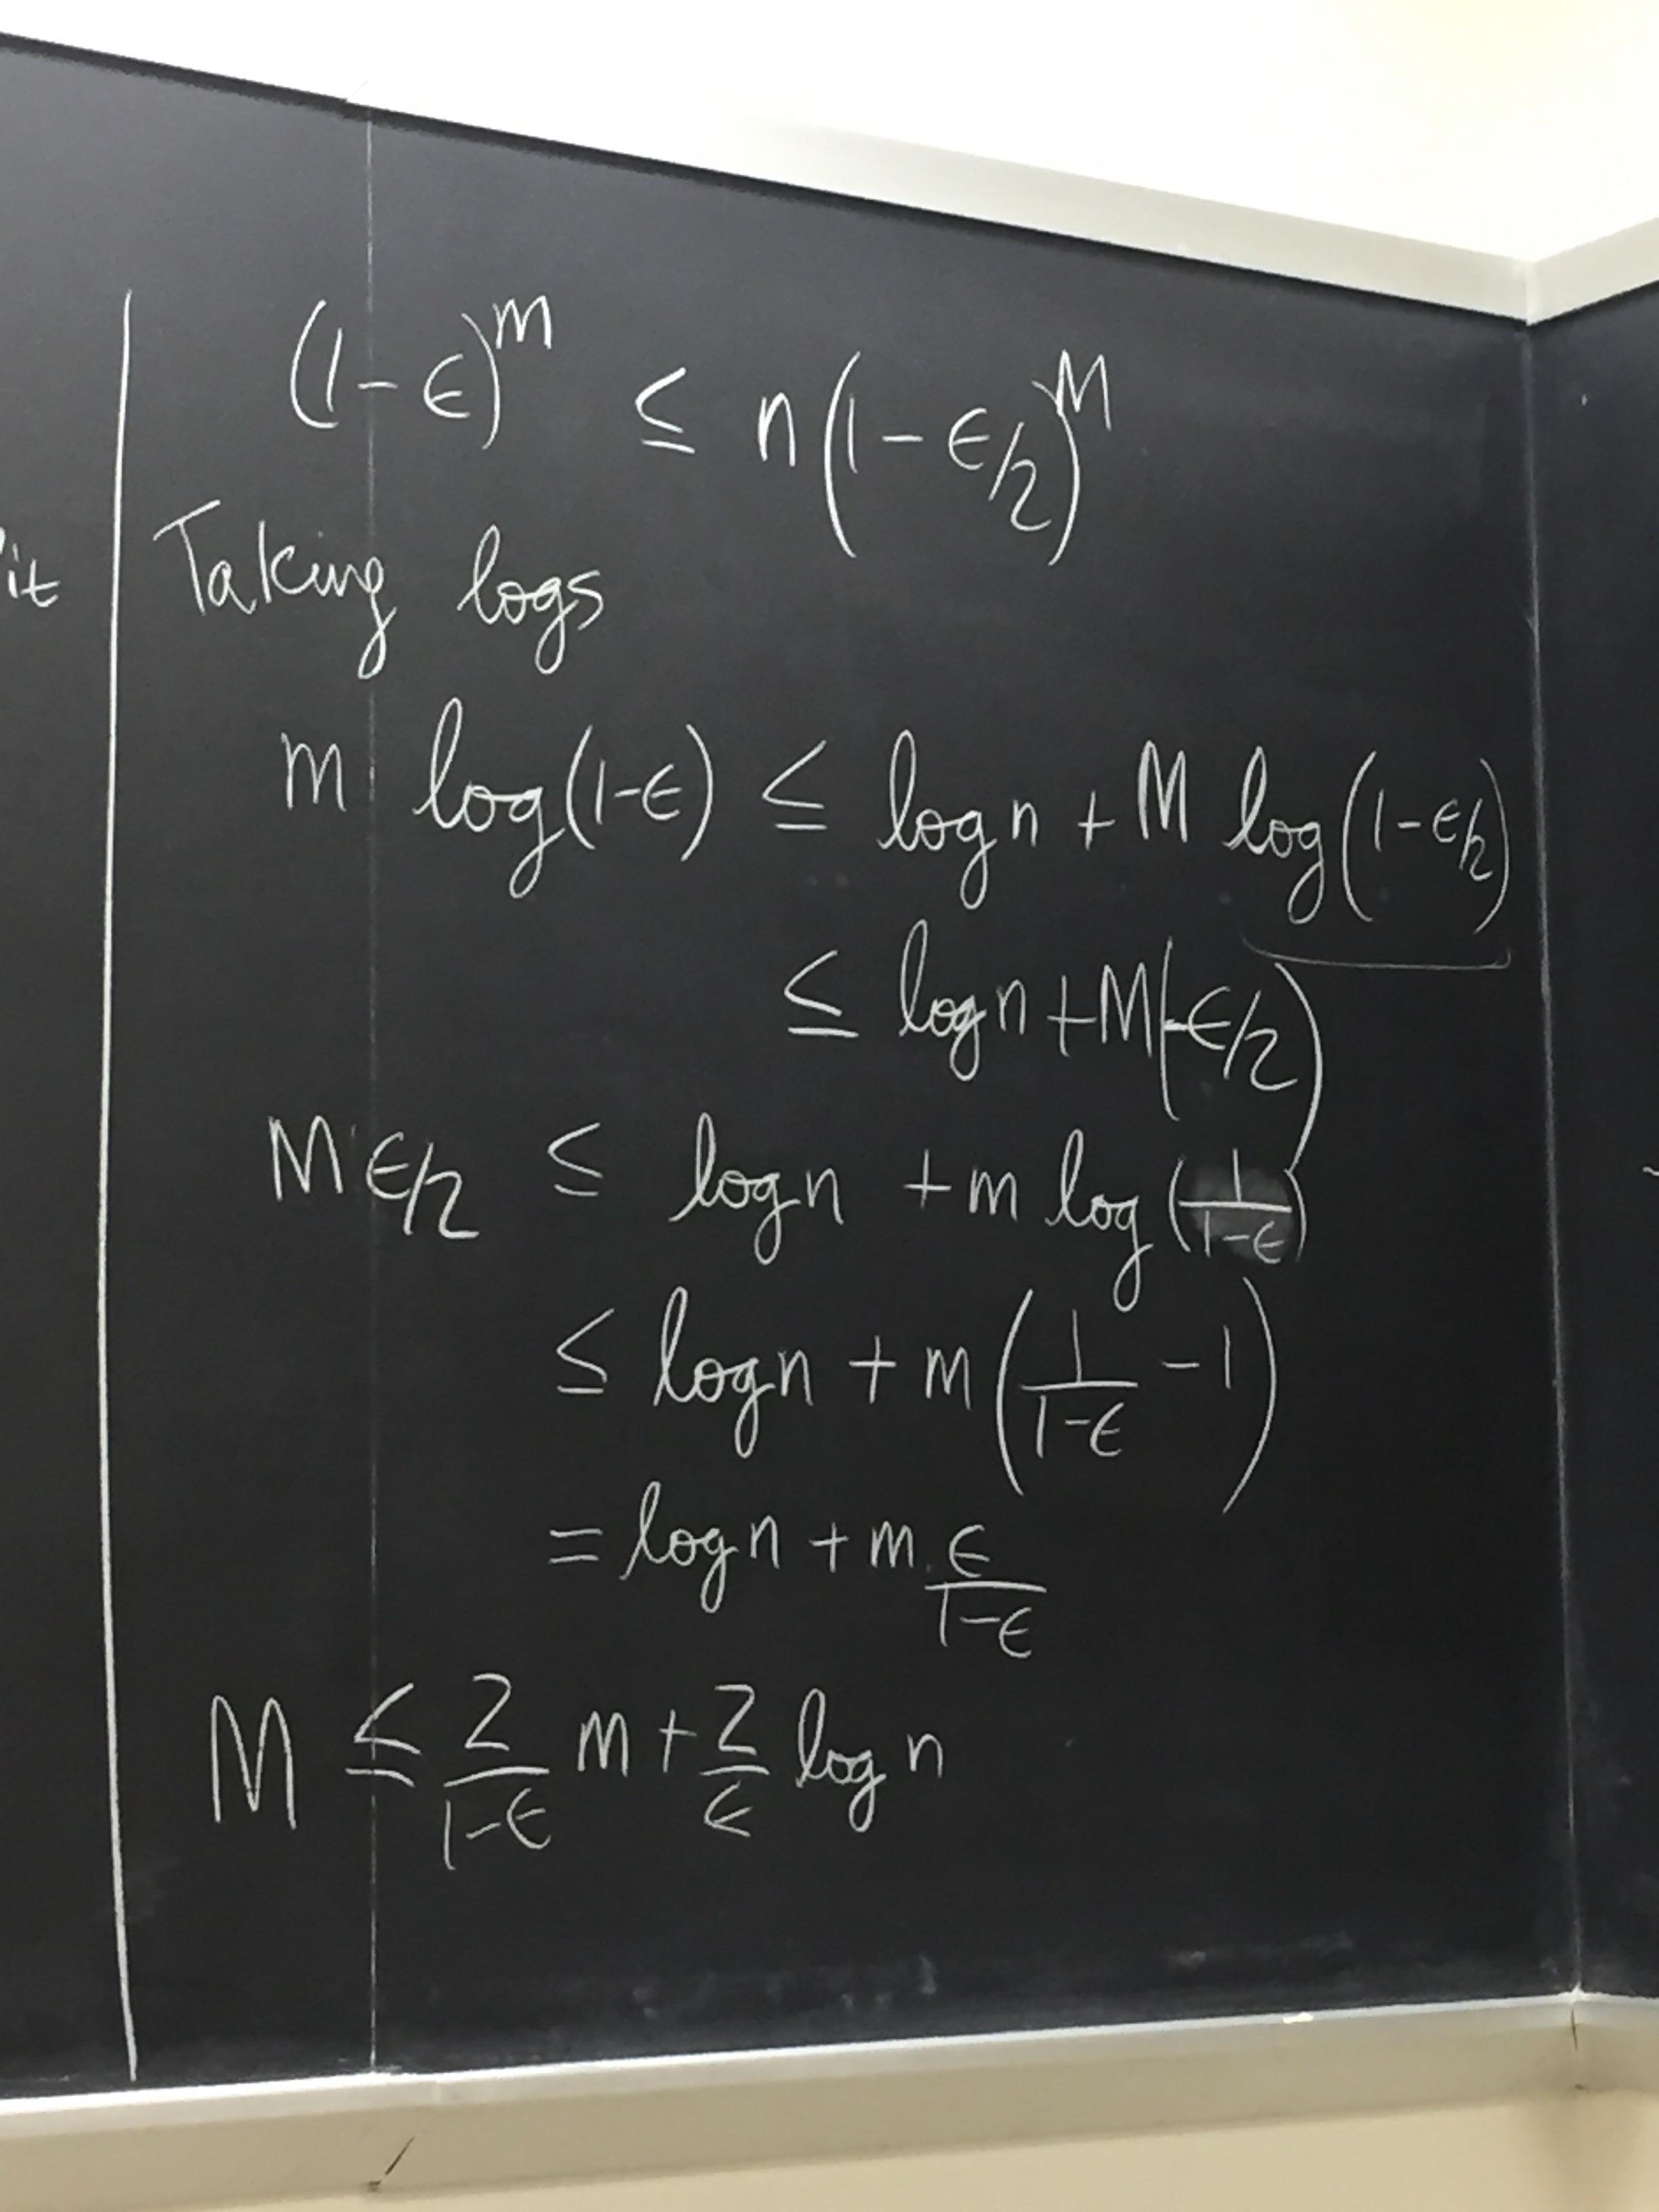 (1-ϵ)^m ≤ n(1-ϵ/2)^M
it
Taking logs
m log(1-ϵ) ≤ log n + M log(1-ϵ/2)
≤ log n + M(-ϵ/2)
M ϵ/2 ≤ log n + m log(1/(1-ϵ))
≤ log n + m(1/(1-ϵ) - 1)
= log n + m. ϵ/(1-ϵ)
M ≤ 2/(1-ϵ) m + 2/ϵ log n